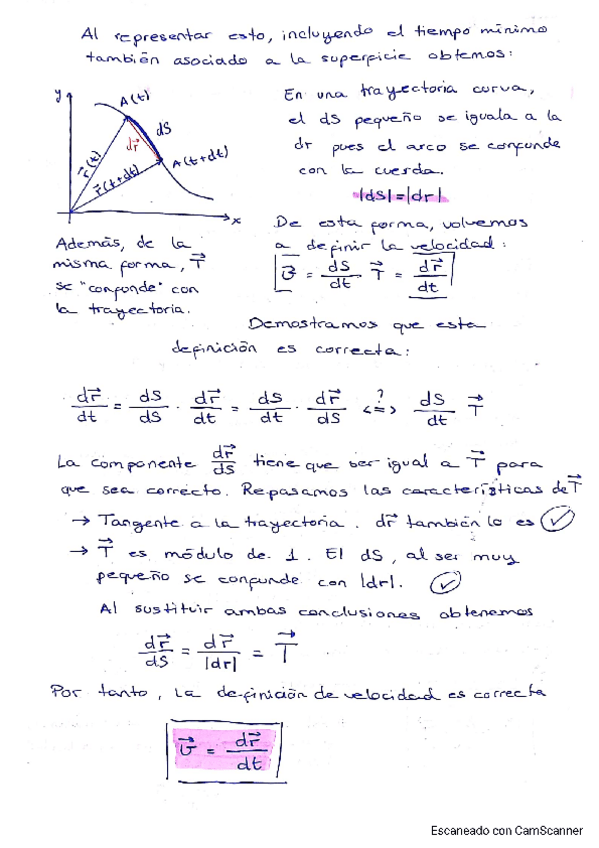 Al representar esto, incluyendo el tiempo mínimo
también asociado a la superficie obtemos:
y
A(t)
dS
dr⃗
A(t+dt)
r⃗(t)
r⃗(t+dt)
x
En una trayectoria curva,
el dS pequeño se iguala a la
dr pues el arco se confunde
con la cuerda.
|dS|=|dr|
Además, de la
misma forma, T⃗
se "confonde" con
la trayectoria.
De esta forma, volvemos
a definir la velocidad:
v⃗ = dS/dt T⃗ = dr⃗/dt
Demostramos que esta
definición es correcta:
dr⃗/dt = dS/dS · dr⃗/dt = dS/dt · dr⃗/dS <=?=> dS/dt T⃗
La componente dr⃗/dS tiene que ser igual a T⃗ para
que sea correcto. Repasamos las características de T⃗
→ Tangente a la trayectoria. dr⃗ también lo es ✓
→ T⃗ es módulo de 1. El dS, al ser muy
pequeño se confunde con |dr|. ✓
Al sustituir ambas conclusiones obtenemos
dr⃗/dS = dr⃗/|dr| = T⃗
Por tanto, la definición de velocidad es correcta
v⃗ = dr⃗/dt
Escaneado con CamScanner